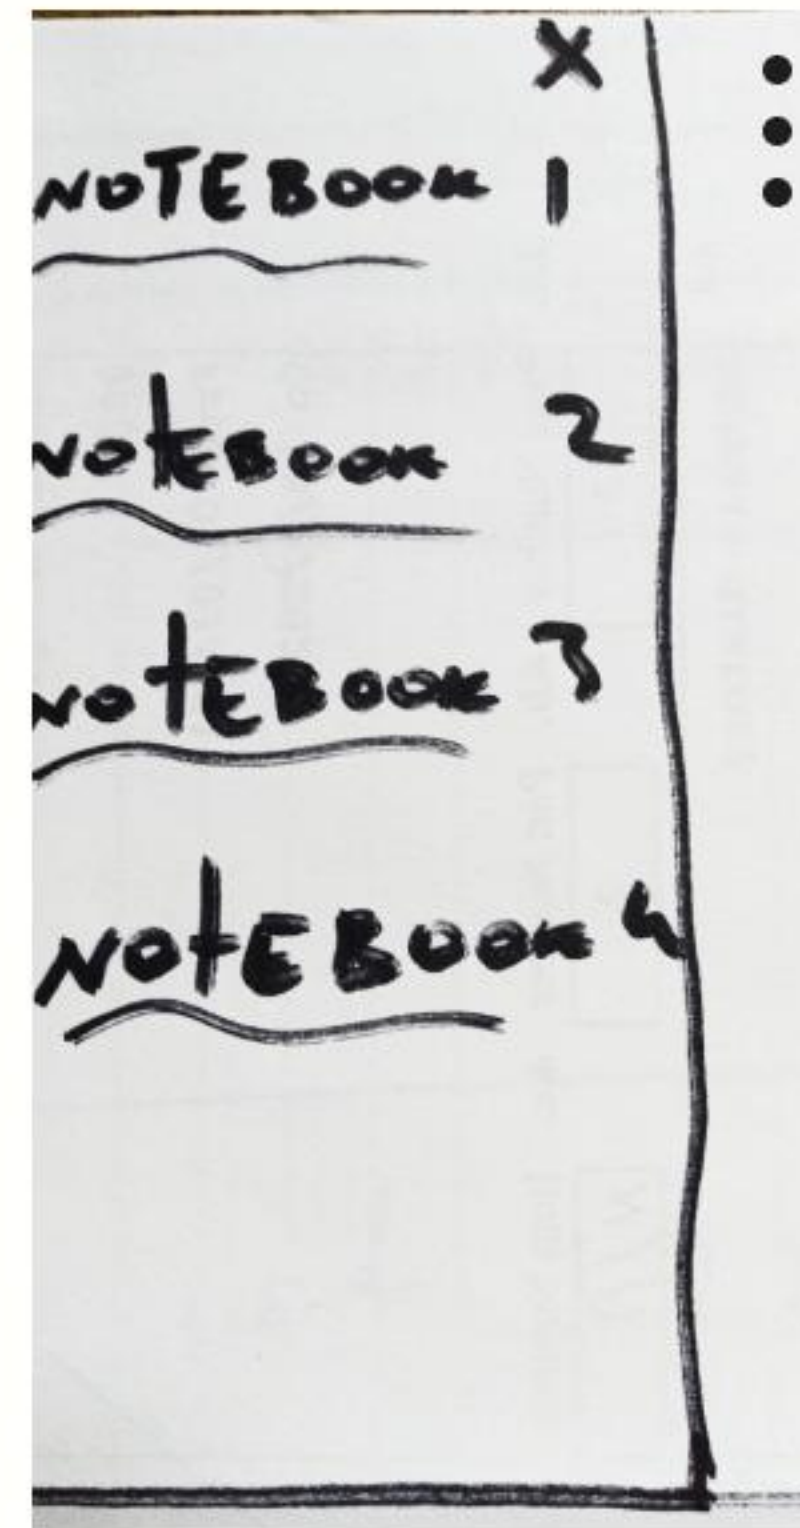 X
NOTEBOOK 1
NOTEBOOK 2
NOTEBOOK 3
NOTEBOOK 4